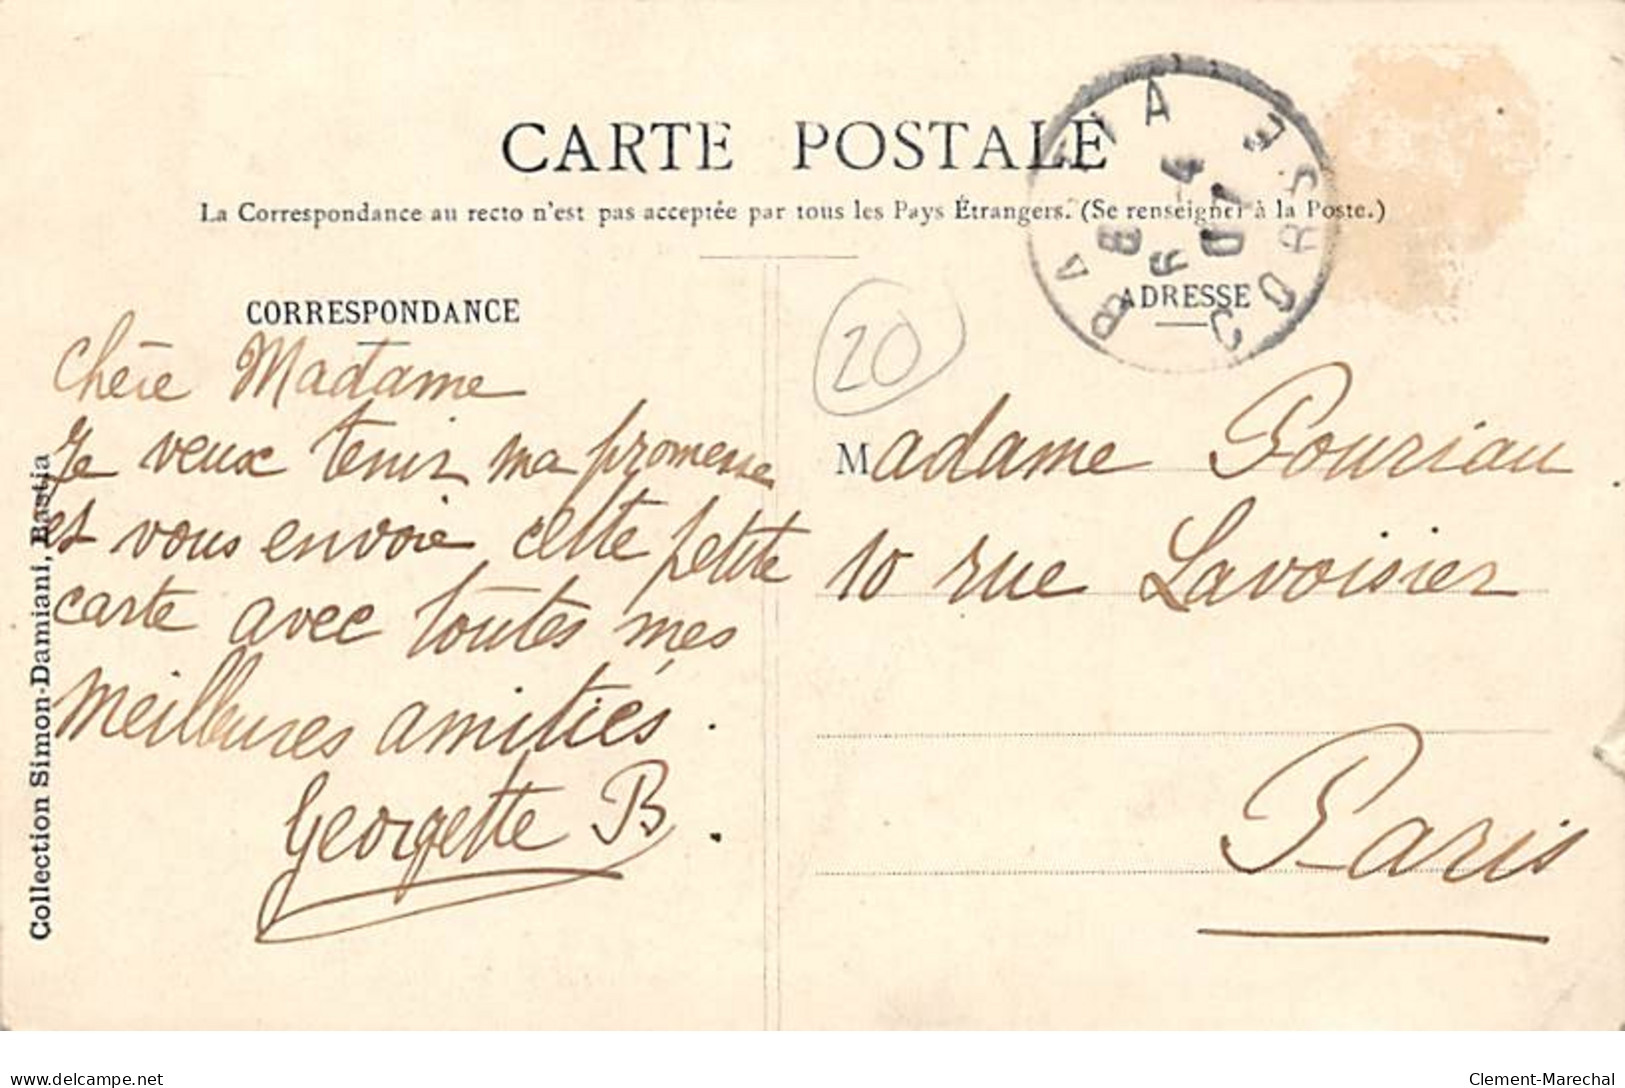 CARTE POSTALE
La Correspondance au recto n'est pas acceptée par tous les Pays Étrangers. (Se renseigner à la Poste.)
BASTIA
CORSE
CORRESPONDANCE
Chère Madame
Je veux tenir ma promesse
et vous envoie cette petite
carte avec toutes mes
meilleures amitiés.
Georgette B.
Collection Simon-Damiani, Bastia
20
ADRESSE
Madame Pouriau
10 rue Lavoisier
Paris
delcampe.net
Clement-Marechal